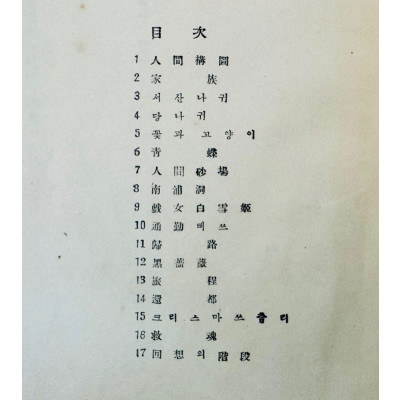 目次
1 人間構圖
2 家族
3 서산나귀
4 당나귀
5 꽃과고양이
6 靑蝶
7 人間砂場
8 南浦洞
9 戱女白雪姬
10 通勤뻐쓰
11 歸路
12 黑薔薇
13 旅程
14 還都
15 크리스마쓰츄리
16 救魂
17 回想의階段